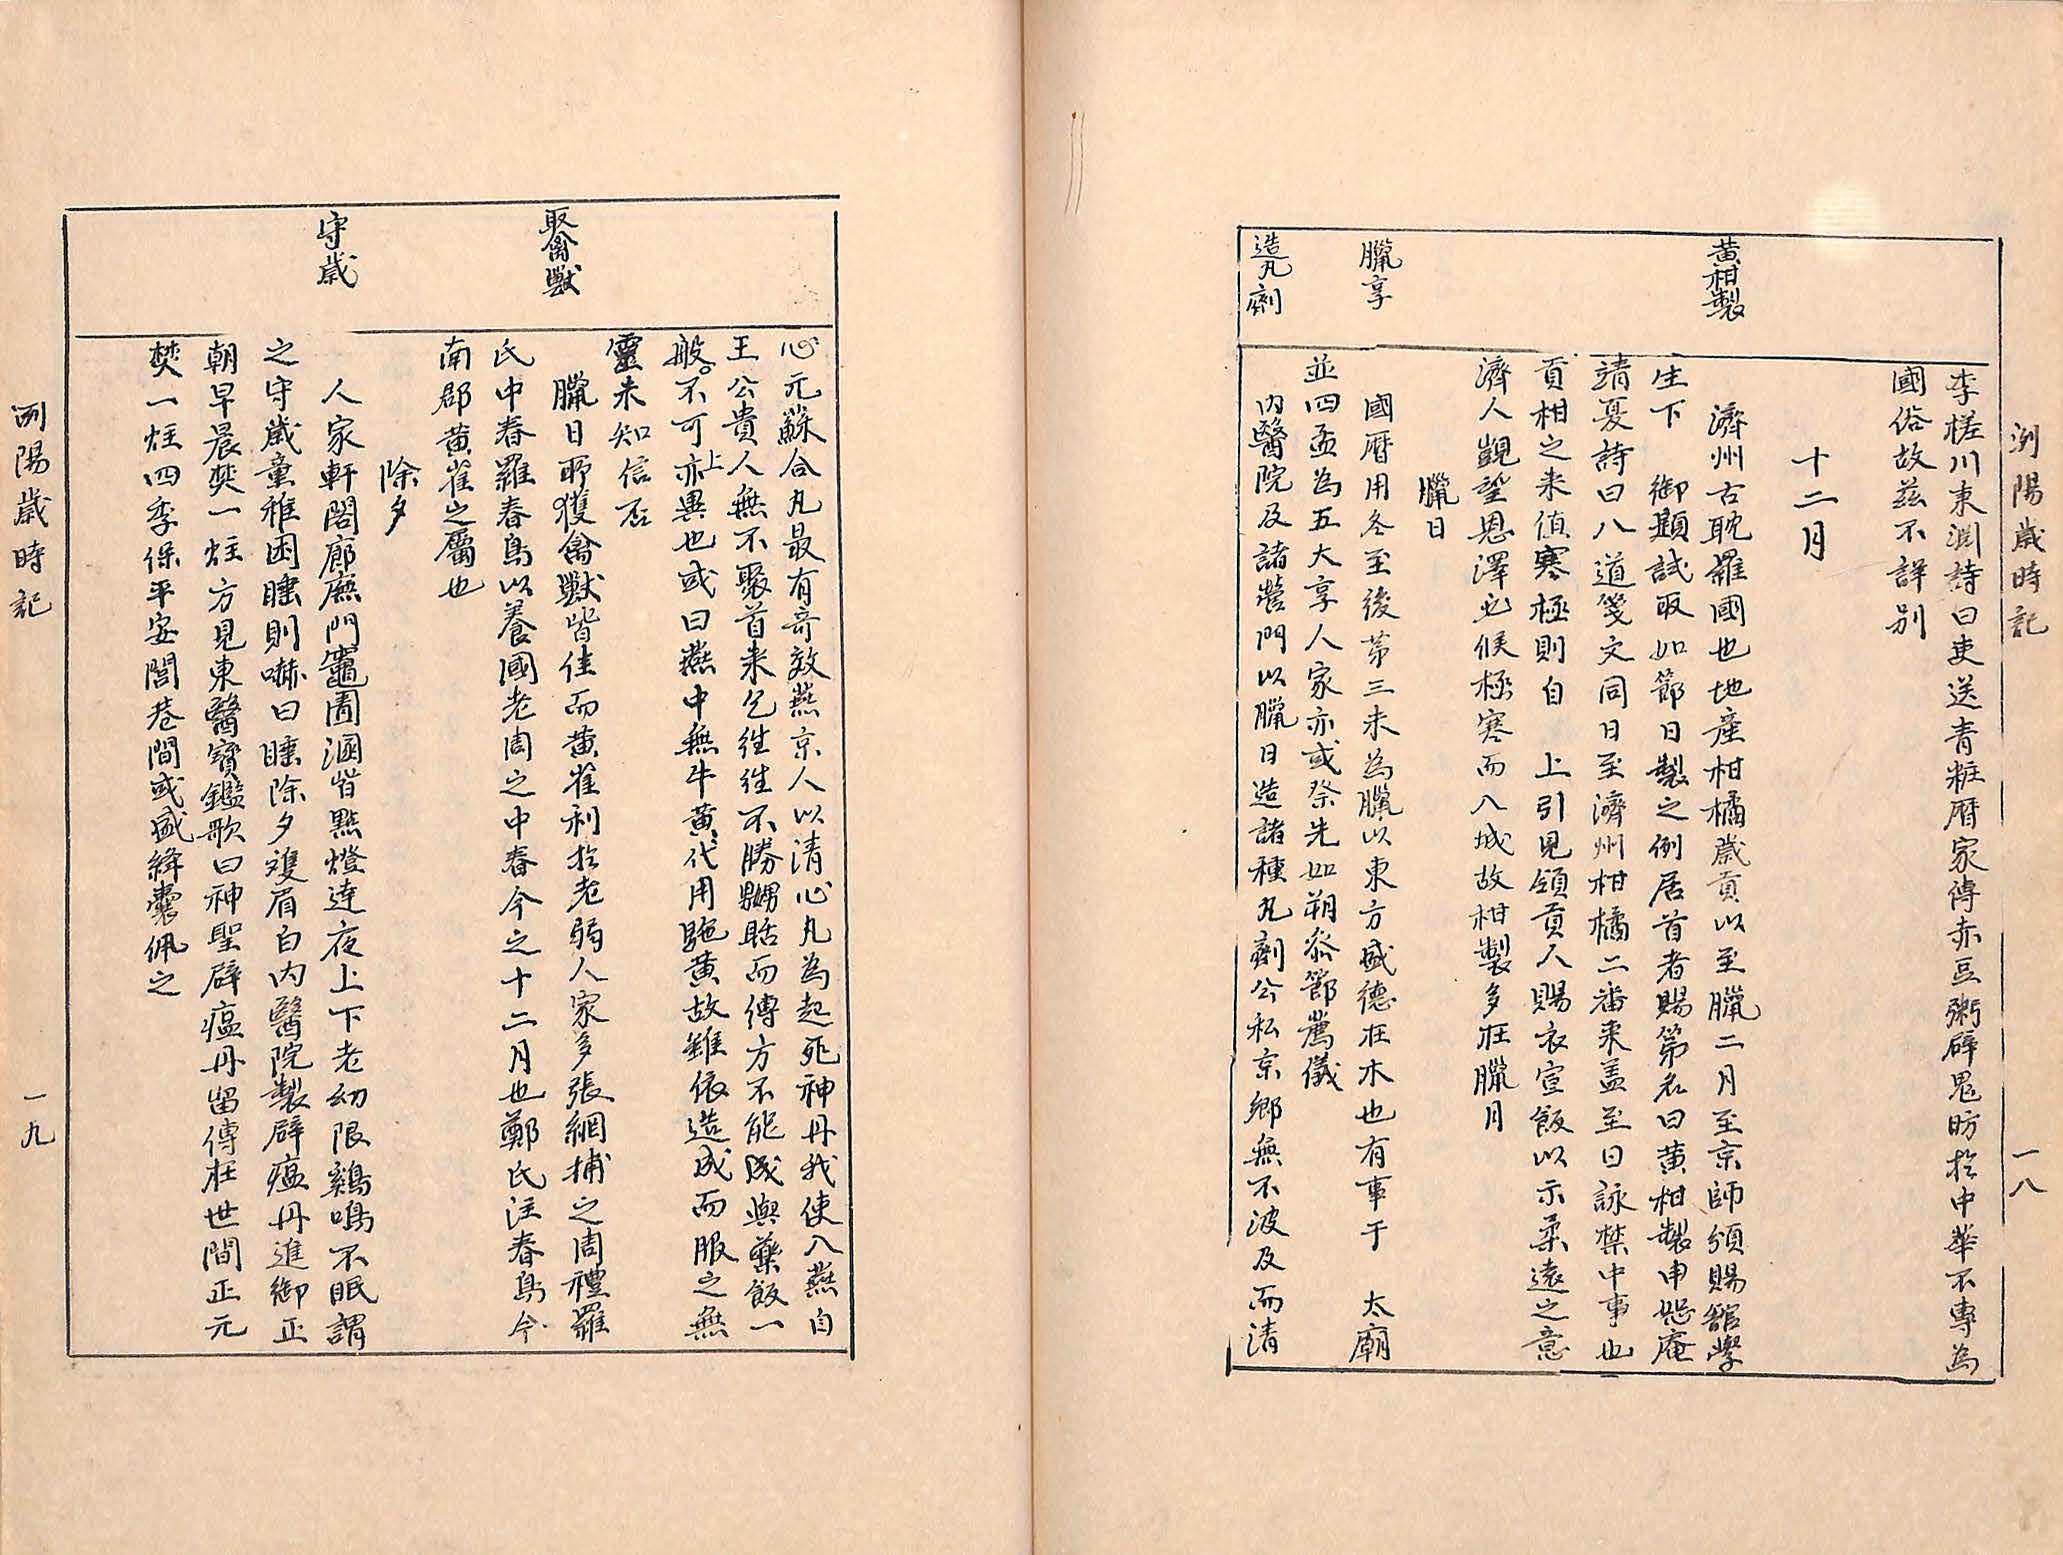 洌陽歲時記
一八
李槎川東澗詩曰吏送青粧曆家傳赤豆粥辟鬼昉於中華不專為
國俗故茲不詳別
十二月
黃柑製
濟州古耽羅國也地產柑橘歲貢以至臘二月至京師頒賜館學
生下 御題試取如節日製之例居首者賜第名曰黃柑製申恕庵
靖夏詩曰八道箋文同日至濟州柑橘二番來盖至日詠禁中事也
貢柑之来值寒極則自 上引見領貢人賜衣宣飯以示柔遠之意
濟人覬望恩澤必候極寒而入城故柑製多在臘月
臘日
臘享
國曆用冬至後苐三未為臘以東方盛德在木也有事于 太廟
並四孟為五大享人家亦或祭先如朔叅節薦儀
造丸劑
内醫院及諸營門以臘日造諸種丸劑公私京鄉無不波及而清
心元蘇合丸最有奇效燕京人以清心丸為起死神丹我使入燕自
王公貴人無不聚首來乞往往不勝嬲聒而傳方不能成與藥飯一
般不可上亦異也或曰燕中無牛黃代用駞黃故雖依造成而服之無
靈未知信否
聚禽獸
臘日所獲禽獸皆佳而黃雀利於老弱人家多張網捕之周禮羅
氏中春羅春鳥以養國老周之中春今之十二月也鄭氏注春鳥今
南郡黃雀之屬也
除夕
守歲
人家軒閣廊廡門竈圊溷皆點燈達夜上下老幼限鷄鳴不眠謂
之守歲童稚困睡則嚇曰睡除夕雙眉白内醫院製辟瘟丹進御正
朝早晨焚一炷方見東醫寶鑑歌曰神聖辟瘟丹留傳在世間正元
焚一炷四季保平安閭巷間或盛絳囊佩之
洌陽歲時記
一九